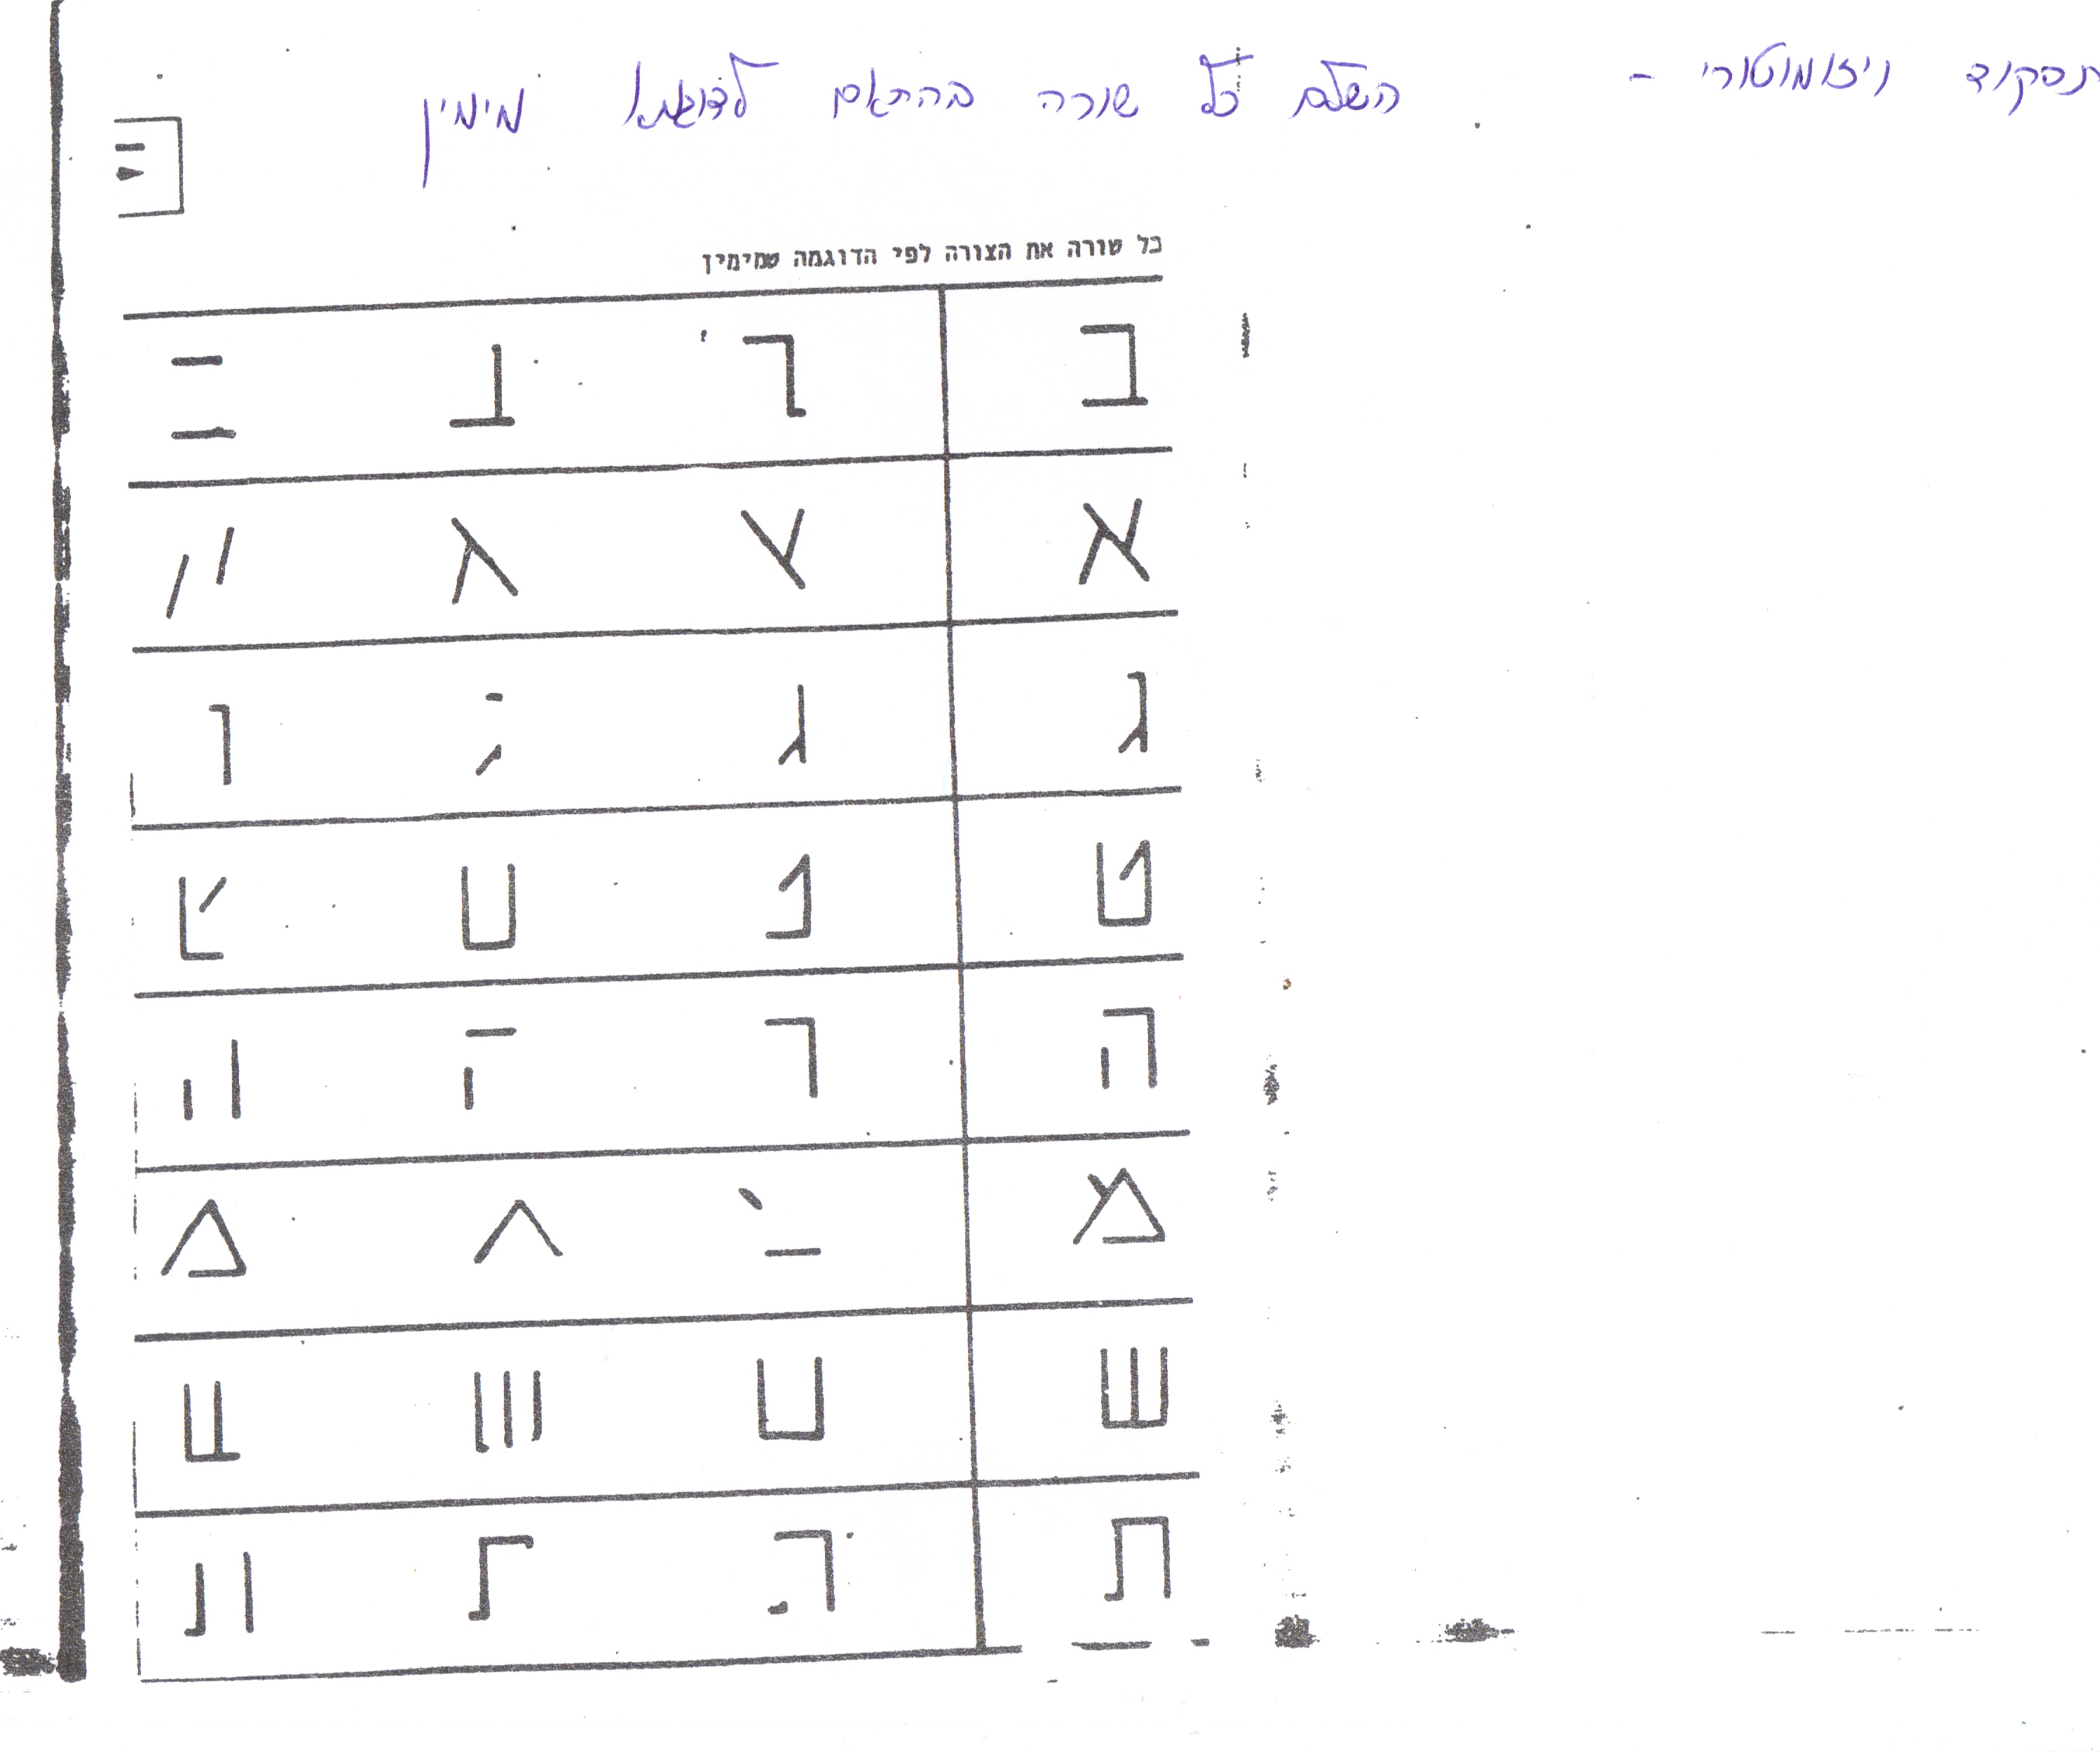 תפקוד ויזומוטורי - השלם כל שורה בהתאם לדוגמא מימין
כל שורה את הצורה לפי הדוגמה שמימין
ב
א
ג
ט
ה
מ
ש
ת